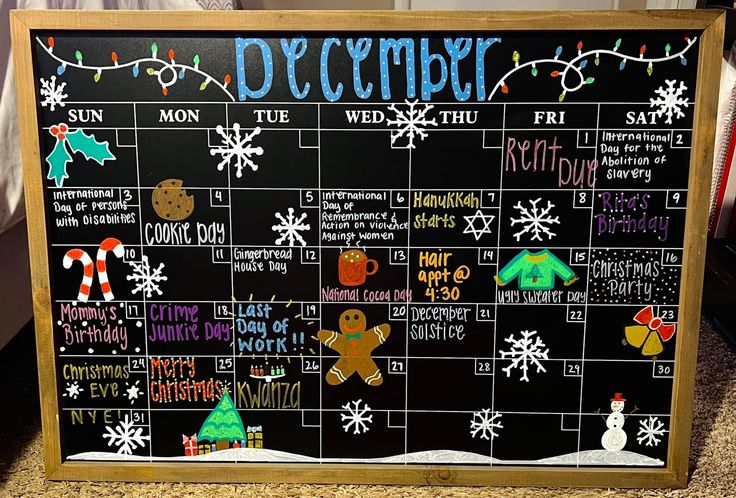 December
SUN MON TUE WED THU FRI SAT
1
Rent Due
2
International
Day for the
Abolition of
slavery
3
International
Day of persons
with Disabilities
4
Cookie Day
5
6
International
Day of
Remembrance &
Action on violence
Against women
7
Hanukkah
starts
8
9
Rita's
Birthday
10
11
12
Gingerbread
House Day
13
National Cocoa Day
14
Hair
appt @
4:30
15
Ugly sweater Day
16
Christmas
Party
17
Mommy's
Birthday
18
Crime
Junkie Day
19
Last
Day of
Work!!
20
21
December
Solstice
22
23
24
Christmas
Eve
25
Merry
Christmas
26
Kwanza
27
28
29
30
31
NYE!